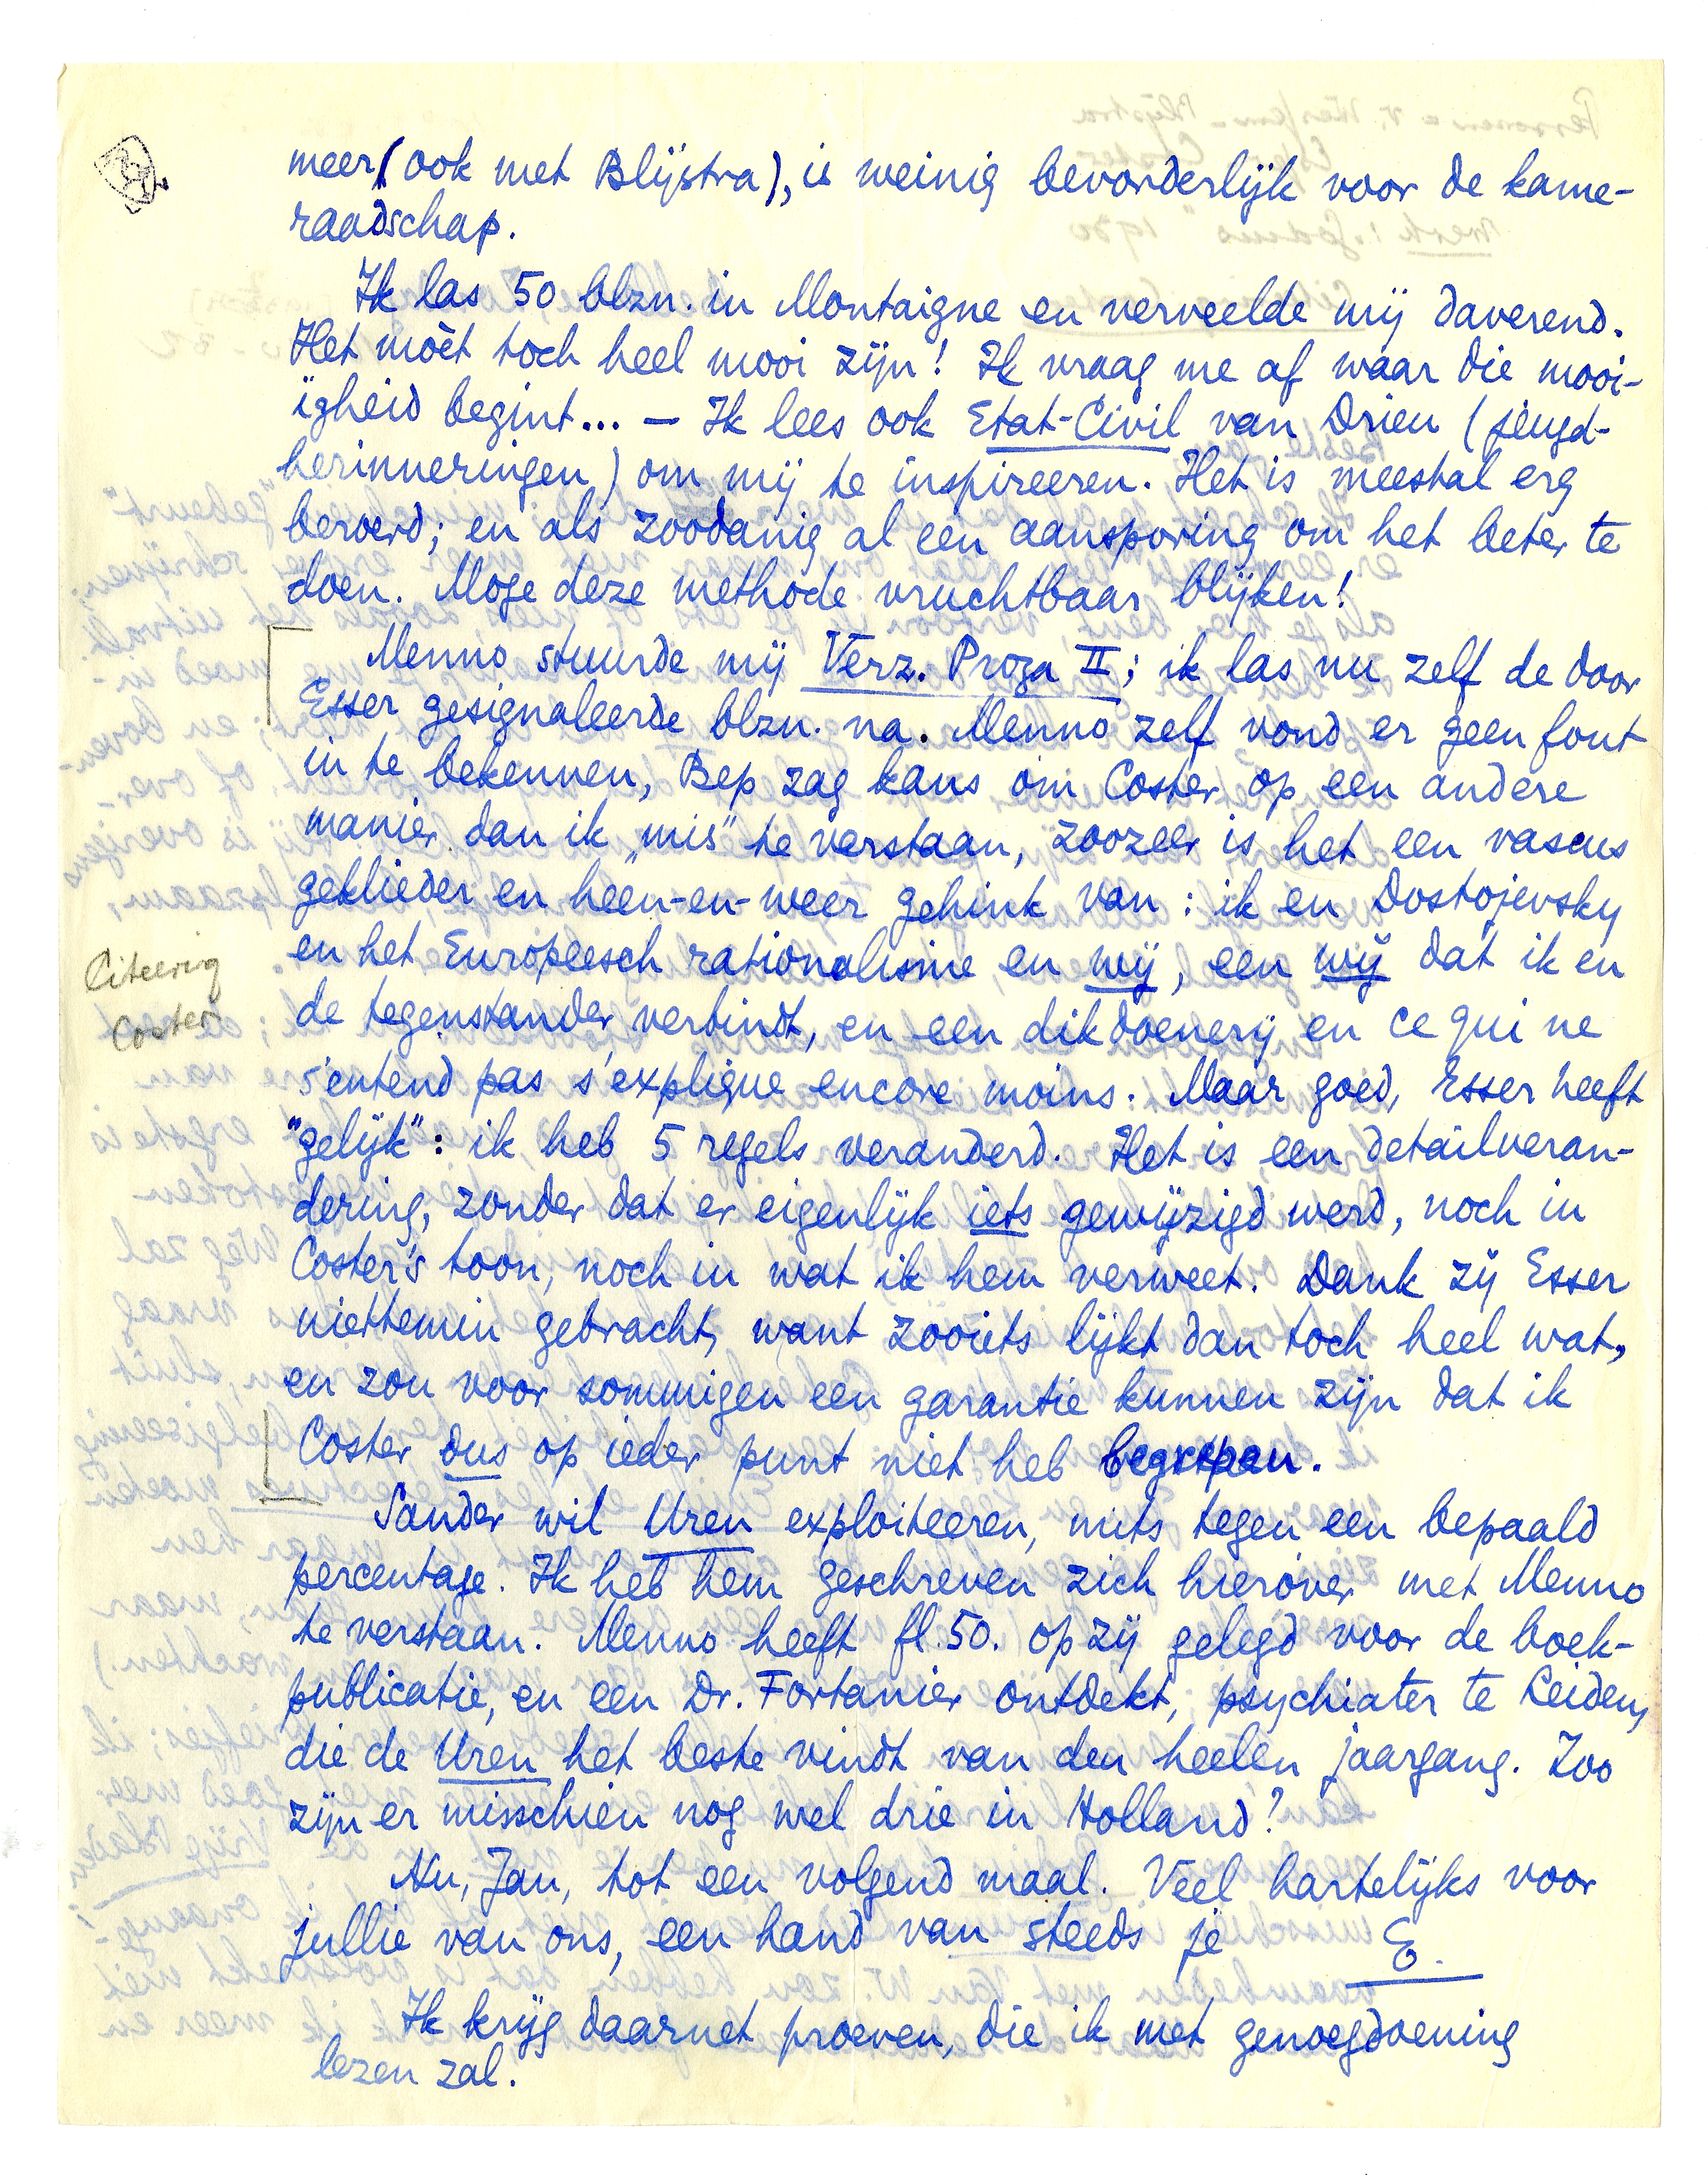 meer (ook met Blijstra), is weinig bevorderlijk voor de kame-
raadschap.
Ik las 50 blzn. in Montaigne en verveelde mij daverend.
Het mòèt toch heel mooi zijn! Ik vraag me af waar die mooi-
ïgheid begint... — Ik lees ook Etat-Civil van Drieu (jeugd-
herinneringen) om mij te inspireeren. Het is meestal erg
beroerd; en als zoodanig al een aansporing om het beter te
doen. Moge deze methode vruchtbaar blijken!
Menno stuurde mij Verz. Proza II; ik las nu zelf de door
Esser gesignaleerde blzn. na. Menno zelf vond er geen fout
in te bekennen, Bep zag kans om Coster op een andere
manier dan ik „mis" te verstaan, zoozeer is het een vaseus
geklieder en heen-en-weer gehink van: ik en Dostojevsky
en het Europeesch rationalisme en wij, een wij dat ik en
Citeering
Coster
de tegenstander verbindt, en een dikdoenerij en ce qui ne
s'entend pas s'explique encore moins. Maar goed, Esser heeft
"gelijk": ik heb 5 regels veranderd. Het is een detailveran-
dering, zonder dat er eigenlijk iets gewijzigd werd, noch in
Coster's toon, noch in wat ik hem verweet. Dank zij Esser
niettemin gebracht, want zooiets lijkt dan toch heel wat,
en zou voor sommigen een garantie kunnen zijn dat ik
Coster dus op ieder punt niet heb begrepen.
Sander wil Uren exploiteeren, mits tegen een bepaald
percentage. Ik heb hem geschreven zich hierover met Menno
te verstaan. Menno heeft fl. 50. op zij gelegd voor de boek-
publicatie, en een Dr. Fortanier ontdekt, psychiater te Leiden,
die de Uren het beste vindt van den heelen jaargang. Zoo
zijn er misschien nog wel drie in Holland?
Nu, Jan, tot een volgend maal. Veel hartelijks voor
jullie van ons, een hand van steeds je E.
Ik krijg daarnet proeven, die ik met genoegdoening
lezen zal.